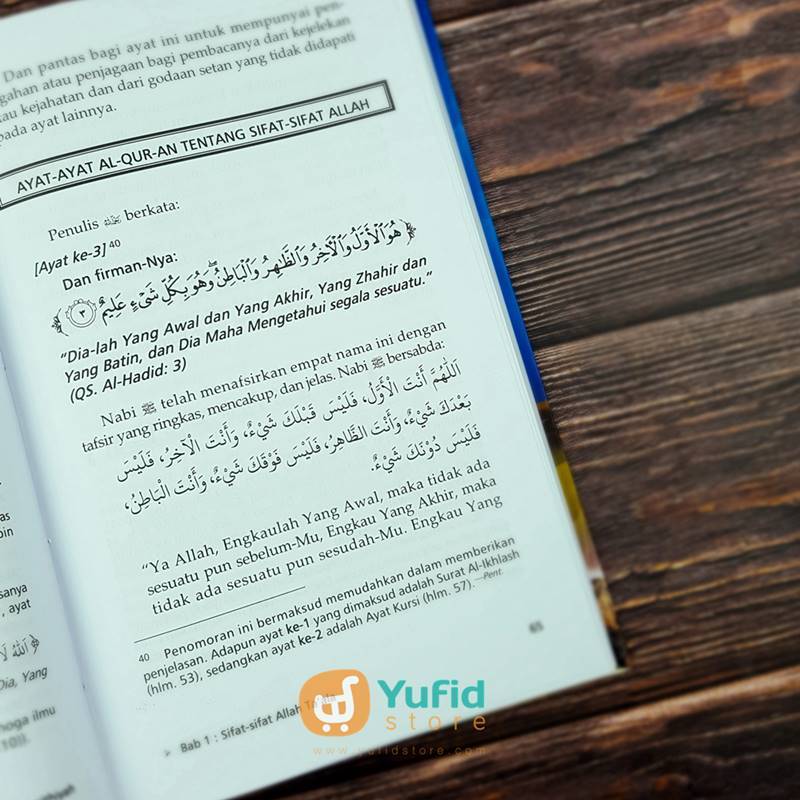 Dan pantas bagi ayat ini untuk mempunyai pen-
gahan atau penjagaan bagi pembacanya dari kejelekan
au kejahatan dan dari godaan setan yang tidak didapati
pada ayat lainnya.
AYAT-AYAT AL-QUR-AN TENTANG SIFAT-SIFAT ALLAH
Penulis berkata:
[Ayat ke-3] 40
Dan firman-Nya:
﴿ هُوَ ٱلْأَوَّلُ وَٱلْآخِرُ وَٱلظَّٰهِرُ وَٱلْبَاطِنُ ۖ وَهُوَ بِكُلِّ شَىْءٍ عَلِيمٌ ٣ ﴾
“Dia-lah Yang Awal dan Yang Akhir, Yang Zhahir dan
Yang Batin, dan Dia Maha Mengetahui segala sesuatu.”
(QS. Al-Hadid: 3)
Nabi ﷺ telah menafsirkan empat nama ini dengan
tafsir yang ringkas, mencakup, dan jelas. Nabi ﷺ bersabda:
اَللّٰهُمَّ أَنْتَ الْأَوَّلُ، فَلَيْسَ قَبْلَكَ شَيْءٌ، وَأَنْتَ الْآخِرُ، فَلَيْسَ
بَعْدَكَ شَيْءٌ، وَأَنْتَ الظَّاهِرُ، فَلَيْسَ فَوْقَكَ شَيْءٌ، وَأَنْتَ الْبَاطِنُ،
فَلَيْسَ دُوْنَكَ شَيْءٌ.
“Ya Allah, Engkaulah Yang Awal, maka tidak ada
sesuatu pun sebelum-Mu, Engkau Yang Akhir, maka
tidak ada sesuatu pun sesudah-Mu. Engkau Yang
40 Penomoran ini bermaksud memudahkan dalam memberikan
penjelasan. Adapun ayat ke-1 yang dimaksud adalah Surat Al-Ikhlash
(hlm. 53), sedangkan ayat ke-2 adalah Ayat Kursi (hlm. 57).—Pent.
65
Bab 1 : Sifat-sifat Allah
as
sanya
, ayat
Dia, Yang
hoga ilmu
Yufid
store
www.yufidstore.com